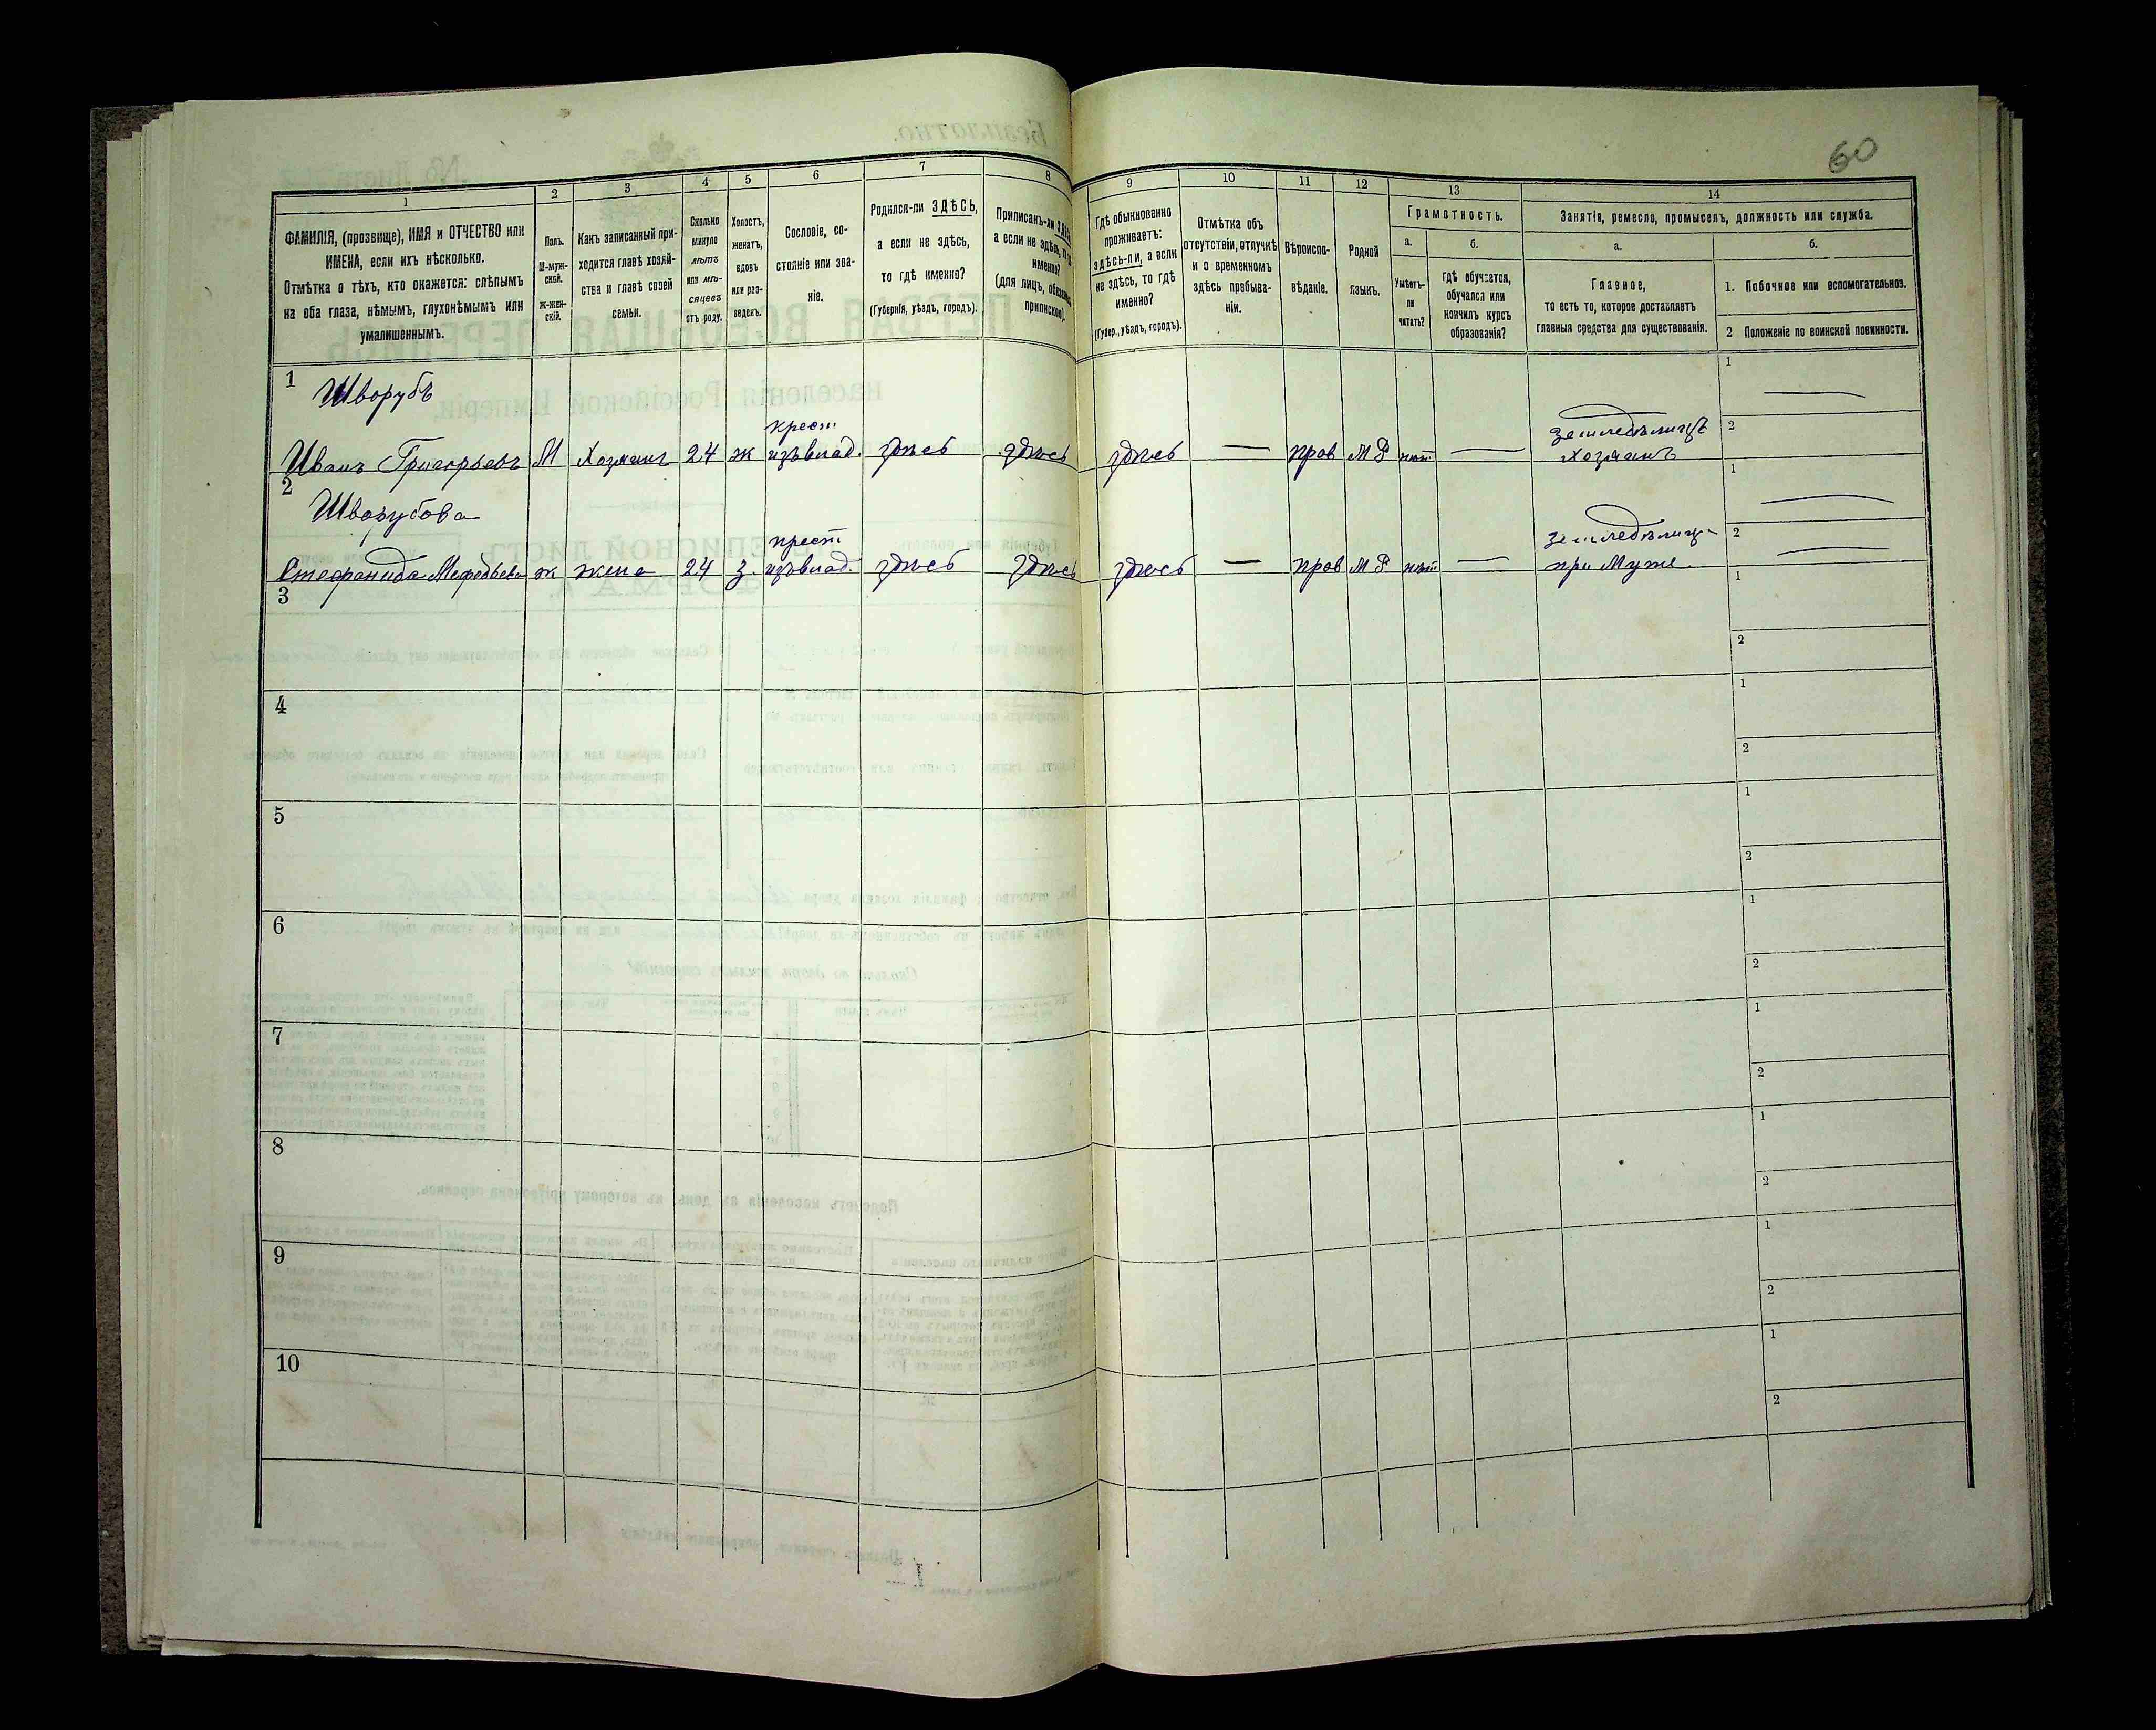 60
1
2
3
4
5
6
7
8
9
10
11
12
13
14
ФАМИЛІЯ, (прозвище), ИМЯ и ОТЧЕСТВО или
ИМЕНА, если ихъ нѣсколько.
Отмѣтка о тѣхъ, кто окажется: слѣпымъ
на оба глаза, нѣмымъ, глухонѣмымъ или
умалишеннымъ.
Полъ.
М-муж-
ской.
Ж-жен-
скій.
Какъ записанный при-
ходится главѣ хозяй-
ства и главѣ своей
семьи.
Сколько
минуло
лѣтъ
или мѣ-
сяцевъ
отъ роду.
Холостъ,
женатъ,
вдовъ
или раз-
веденъ.
Сословіе, со-
стояніе или зва-
ніе.
Родился-ли ЗДѢСЬ,
а если не здѣсь,
то гдѣ именно?
(Губернія, уѣздъ, городъ).
Приписанъ-ли
а если не здѣсь,
именно?
(для лицъ,
припискою).
Гдѣ обыкновенно
проживаетъ:
здѣсь-ли, а если
не здѣсь, то гдѣ
именно?
(Губер., уѣздъ, городъ).
Отмѣтка объ
отсутствіи, отлучкѣ
и о временномъ
здѣсь пребыва-
ніи.
Вѣроиспо-
вѣданіе.
Родной
языкъ.
Грамотность.
а.
Умѣетъ-
ли
читать?
б.
гдѣ обучается,
обучался или
кончилъ курсъ
образованія?
Занятія, ремесло, промыселъ, должность или служба.
а.
Главное,
то есть то, которое доставляетъ
главныя средства для существованія.
б.
1. Побочное или вспомогательное.
2 Положеніе по воинской повинности.
1
Шворубъ
Иванъ Григорьевъ М Хозяинъ 24 ж крест. изъ влад. здѣсь здѣсь здѣсь — прав М Р нѣт — земледѣлецъ хозяинъ
1
2
2
Шворубова
Стефанида Мефодьева ж жена 24 з. крест. изъ влад. здѣсь здѣсь здѣсь — прав М Р нѣт — при Муже
1
2
3
1
2
4
1
2
5
1
2
6
1
2
7
1
2
8
1
2
9
1
2
10
1
2